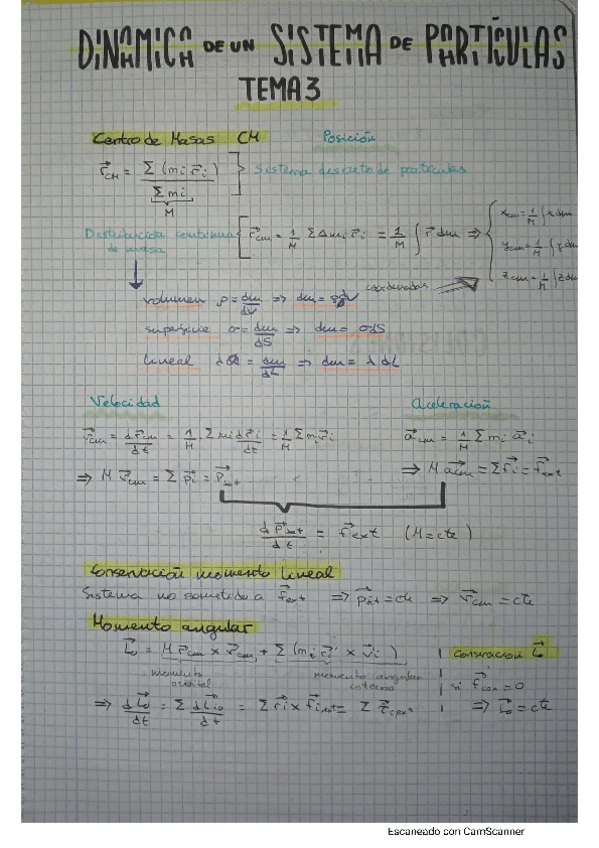 DINÁMICA DE UN SISTEMA DE PARTÍCULAS
TEMA 3
Centro de Masas CM Posición
r⃗CM = Σ (mi r⃗i) / Σ mi ] Sistema discreto de partículas
M
Distribución continua de masa [ r⃗cm = 1/M Σ Δmi r⃗i = 1/M ∫ r⃗ dm ⇒ { xcm = 1/M ∫ x dm
ycm = 1/M ∫ y dm
zcm = 1/M ∫ z dm
coordenadas
volumen ρ = dm/dV ⇒ dm = ρdV
superficie σ = dm/dS ⇒ dm = σdS
lineal λ = dm/dL ⇒ dm = λ dL
Velocidad Aceleración
v⃗cm = d r⃗cm/dt = 1/M · Σ mi d r⃗i/dt = 1/M Σ mi v⃗i a⃗cm = 1/M Σ mi a⃗i
⇒ M v⃗cm = Σ p⃗i = P⃗tot ⇒ M a⃗cm = Σ f⃗i = f⃗ext
d P⃗tot/dt = f⃗ext (M = cte)
Conservación momento lineal
Sistema no sometido a f⃗ext ⇒ p⃗tot = cte ⇒ v⃗cm = cte
Momento angular
L⃗o = M r⃗cm × v⃗cm + Σ (mi r⃗i' × v⃗i) Conservacion L⃗o
momento orbital momento angular interno si f⃗ext = 0
⇒ dL⃗o/dt = Σ dL⃗io/dt = Σ r⃗i × f⃗i ext = Σ τ⃗i ext ⇒ L⃗o = cte
Escaneado con CamScanner